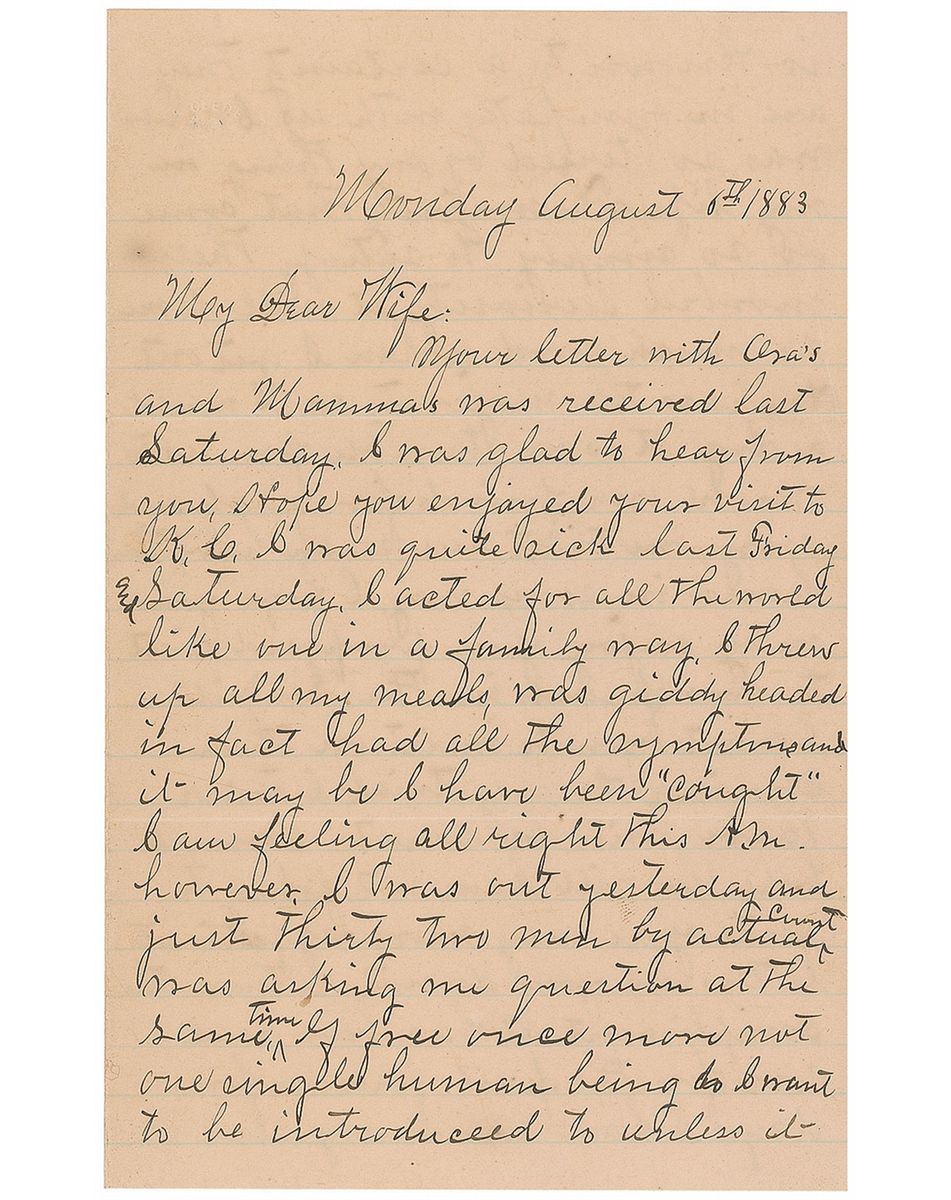 Monday August 6th 1883
My Dear Wife:
Your letter with Ora's
and Mammas was received last
Saturday. I was glad to hear from
you, Hope you enjoyed your visit to
K. C. I was quite sick last Friday
and Saturday. I acted for all the world
like one in a family way, I threw
up all my meals, was giddy headed
in fact had all the symptoms and
it may be I have been "Cought"
I am feeling all right this A.M.
however. I was out yesterday and
just thirty two men by actual count
was asking me question at the
same time, If free once more not
one single human being do I want
to be introduceed to unless it